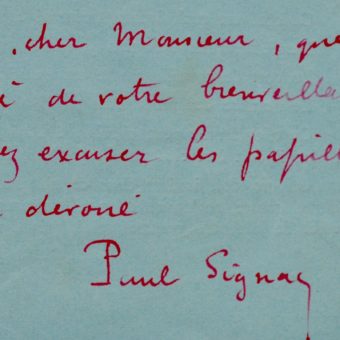 , cher Monsieur, que
é de votre bienveilla
ez excuser les papill
dévoué
Paul Signac